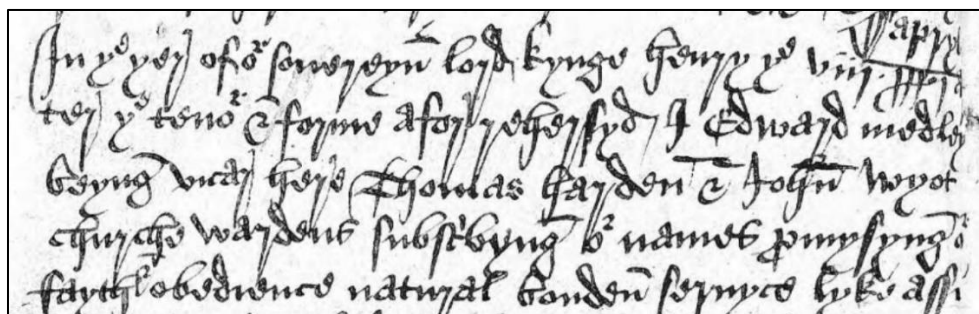 In yͤ yer of oʳ sovereyn lord kynge henry yͤ viii. xxvi
ter yͤ tenoʳ & forme afor rehersyd I Edward medley
beyng vicar here Thomas harden & John wyot
churche wardens subscrybyng oʳ names promysyng oʳ
faythful obedience natural bonden servyce lyke assi